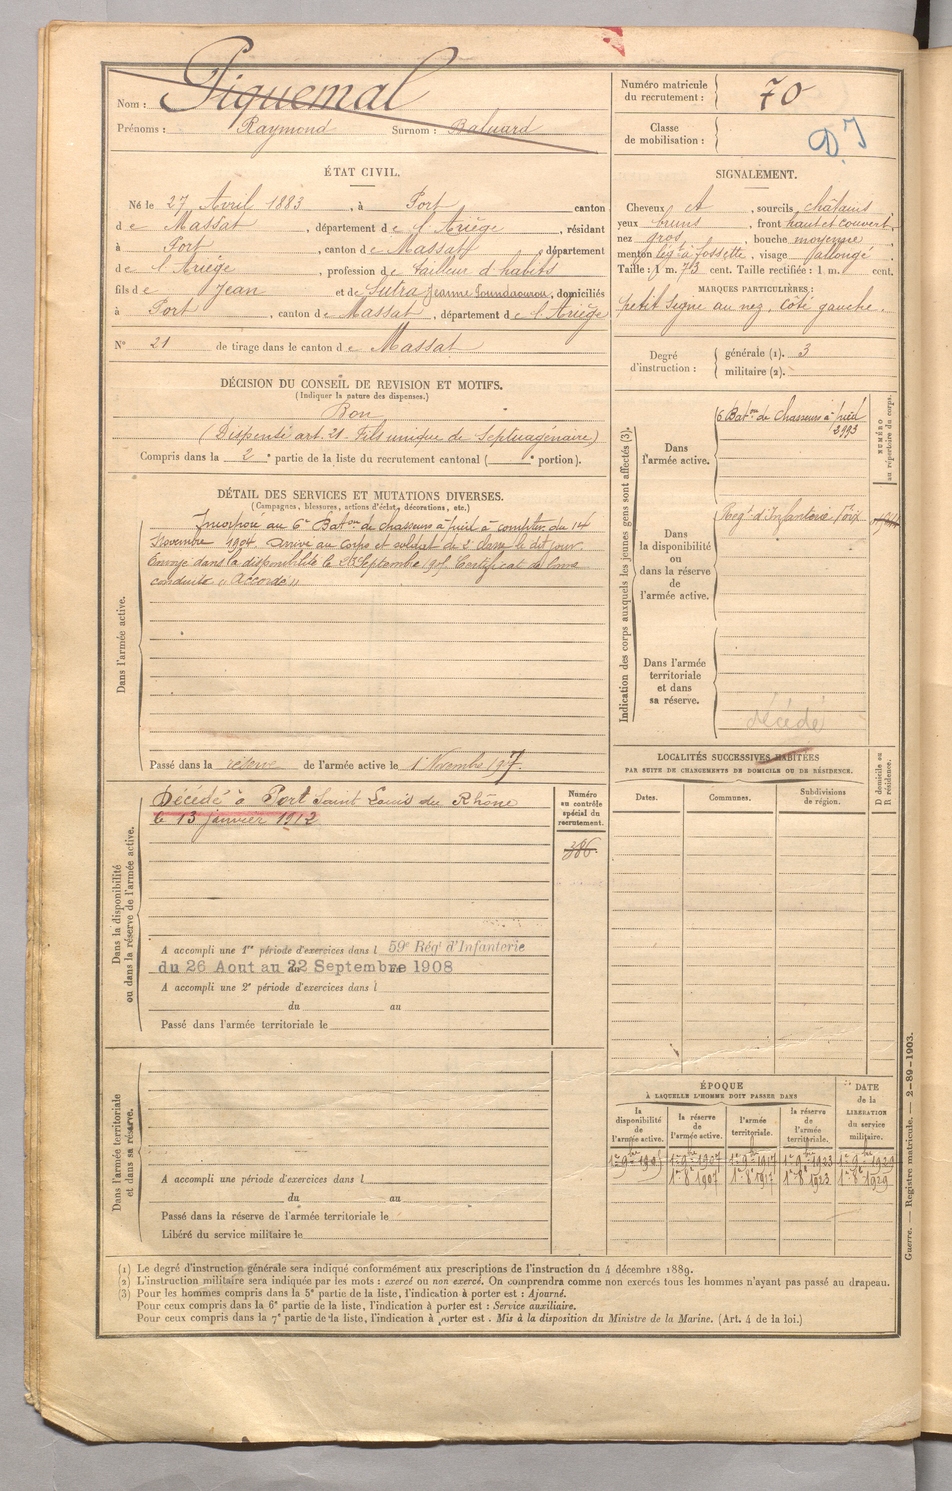 Nom : Piquemal
Prénoms : Raymond Surnom : Baluard
Numéro matricule du recrutement : 70
Classe de mobilisation :
D.I
ÉTAT CIVIL.
Né le 27 Avril 1883, à Port canton
de Massat, département de l'Ariège, résidant
à Port, canton de Massat, département
de l'Ariège, profession de tailleur d'habits
fils de Jean et de Sutra Jeanne, domiciliés
à Port, canton de Massat, département de l'Ariège
N° 21 de tirage dans le canton de Massat
SIGNALEMENT.
Cheveux et, sourcils châtains
yeux bruns, front haut et couvert,
nez gros, bouche moyenne
menton à fossette, visage allongé
Taille : 1 m. 73 cent. Taille rectifiée : 1 m. cent.
MARQUES PARTICULIÈRES :
petit signe au nez, côté gauche.
Degré d'instruction : générale (1). 3
militaire (2).
DÉCISION DU CONSEIL DE REVISION ET MOTIFS.
(Indiquer la nature des dispenses.)
Bon
(Dispensé art. 21 - Fils unique de Septuagénaire)
Compris dans la 2e partie de la liste du recrutement cantonal ( e portion).
DÉTAIL DES SERVICES ET MUTATIONS DIVERSES.
(Campagnes, blessures, actions d'éclat, décorations, etc.)
Dans l'armée active.
Incorporé au 6e Baton de chasseurs à pied à compter du 14
Novembre 1904. Arrivé au corps et soldat de 2e classe le dit jour.
Envoyé dans la disponibilité le Septembre 1905. Certificat de bonne
conduite "Accordé"
Passé dans la réserve de l'armée active le 1 Novembre 1907.
Indication des corps auxquels les jeunes gens sont affectés (3).
NUMÉRO au répertoire du corps.
Dans l'armée active.
6 Baton de Chasseurs à pied
2993
Dans la disponibilité ou dans la réserve de l'armée active.
Régt d'Infanterie Foix
Dans l'armée territoriale et dans sa réserve.
décédé
Dans la disponibilité ou dans la réserve de l'armée active.
Décédé à Port Saint Louis du Rhône
le 13 janvier 1912
Numéro en contrôle spécial du recrutement.
386.
A accompli une 1re période d'exercices dans l 59e Régt d'Infanterie
du 26 Aout au 22 Septembre 1908
A accompli une 2e période d'exercices dans l
du au
Passé dans l'armée territoriale le
LOCALITÉS SUCCESSIVES HABITÉES
PAR SUITE DE CHANGEMENTS DE DOMICILE OU DE RÉSIDENCE.
Dates. Communes. Subdivisions de région. D domicile ou R résidence.
Dans l'armée territoriale et dans sa réserve.
A accompli une période d'exercices dans l
du au
Passé dans la réserve de l'armée territoriale le
Libéré du service militaire le
ÉPOQUE
À LAQUELLE L'HOMME DOIT PASSER DANS
la disponibilité de l'armée active. la réserve de l'armée active. l'armée territoriale. la réserve de l'armée territoriale. DATE de la LIBÉRATION du service militaire.
1er 9bre 1907 1er 9bre 1917 1er 9bre 1923 1er 9bre 1929
1er 8e 1907 1er 8e 1917 1er 8e 1923 1er 8e 1929
Guerre. — Registre matricule. — 2-89-1903.
(1) Le degré d'instruction générale sera indiqué conformément aux prescriptions de l'instruction du 4 décembre 1889.
(2) L'instruction militaire sera indiquée par les mots : exercé ou non exercé. On comprendra comme non exercés tous les hommes n'ayant pas passé au drapeau.
(3) Pour les hommes compris dans la 5e partie de la liste, l'indication à porter est : Ajourné.
Pour ceux compris dans la 6e partie de la liste, l'indication à porter est : Service auxiliaire.
Pour ceux compris dans la 7e partie de la liste, l'indication à porter est. Mis à la disposition du Ministre de la Marine. (Art. 4 de la loi.)